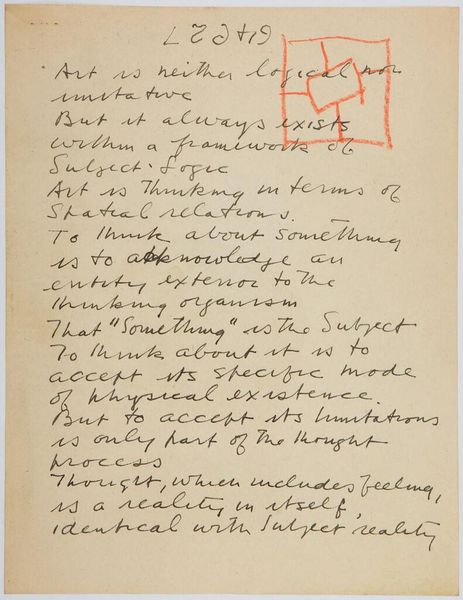 Art is neither logical nor
imitative
But it always exists
within a framework of
Subject-Logic
Art is Thinking in terms of
Spatial relations.
To think about something
is to acknowledge an
entity exterior to the
thinking organism
That "Something" is the Subject
To think about it is to
accept its specific mode
of physical existence.
But to accept its limitations
is only part of the thought
process
Thought, which includes feeling,
is a reality in itself,
identical with Subject reality